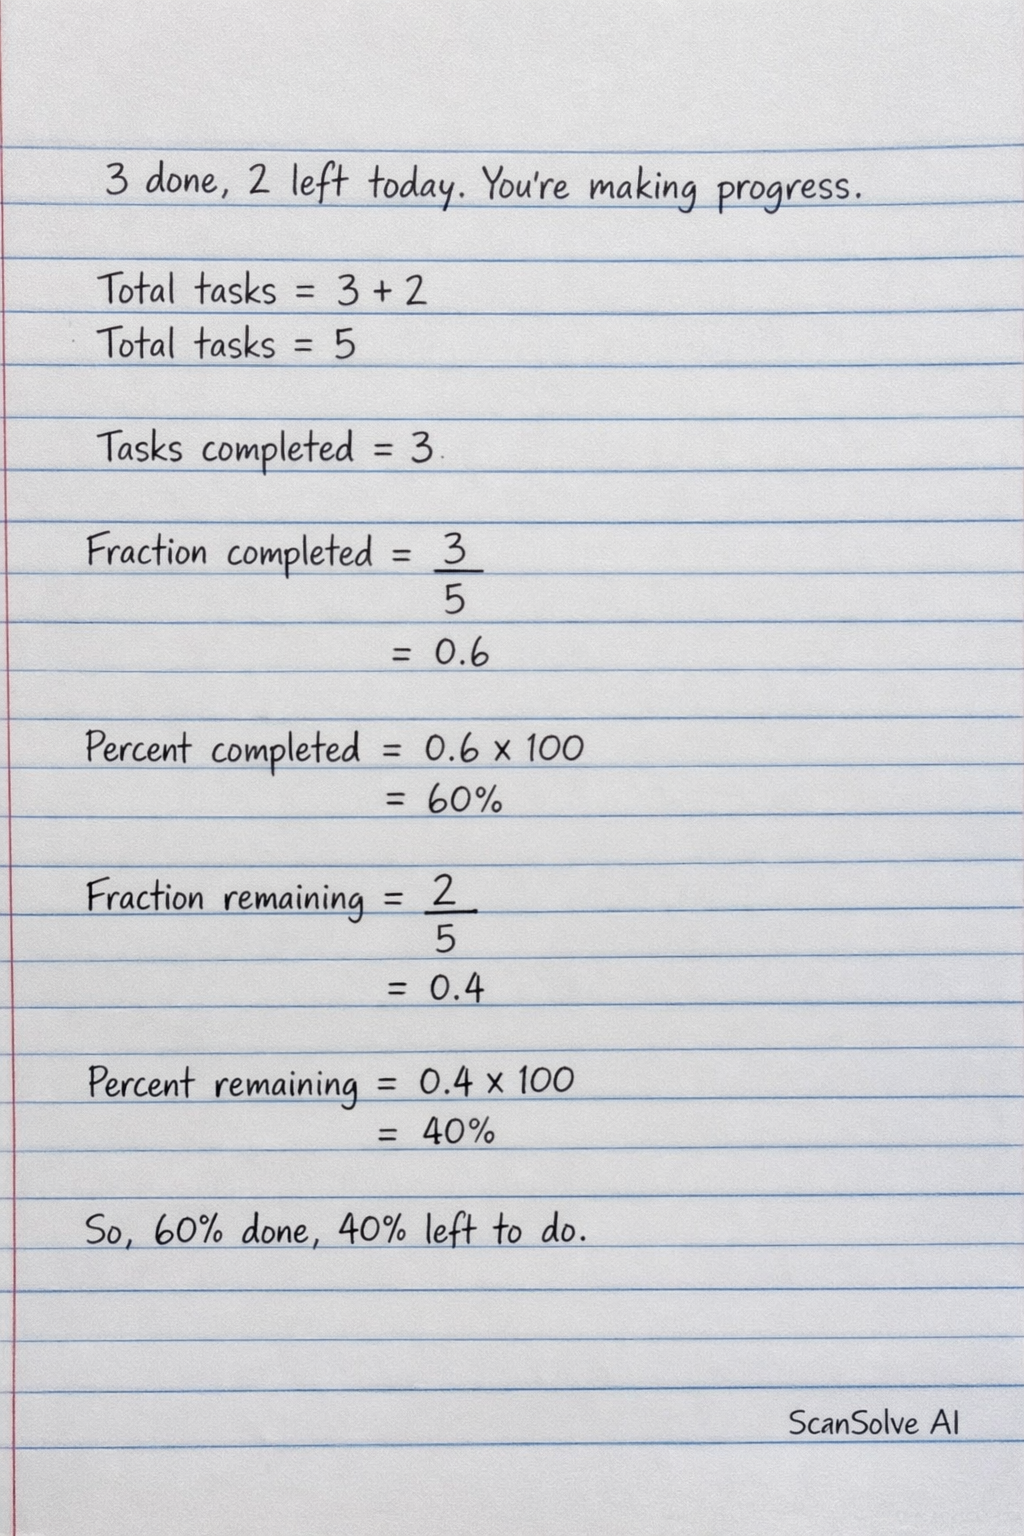 3 done, 2 left today. You're making progress.
Total tasks = 3 + 2
Total tasks = 5
Tasks completed = 3
Fraction completed = 3
5
= 0.6
Percent completed = 0.6 x 100
= 60%
Fraction remaining = 2
5
= 0.4
Percent remaining = 0.4 x 100
= 40%
So, 60% done, 40% left to do.
ScanSolve AI